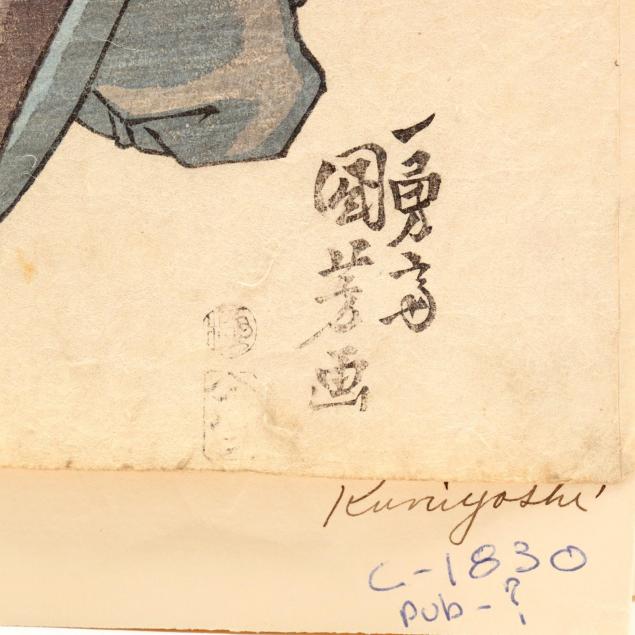 一勇斎
國芳画
Kuniyoshi
C-1830
pub-?